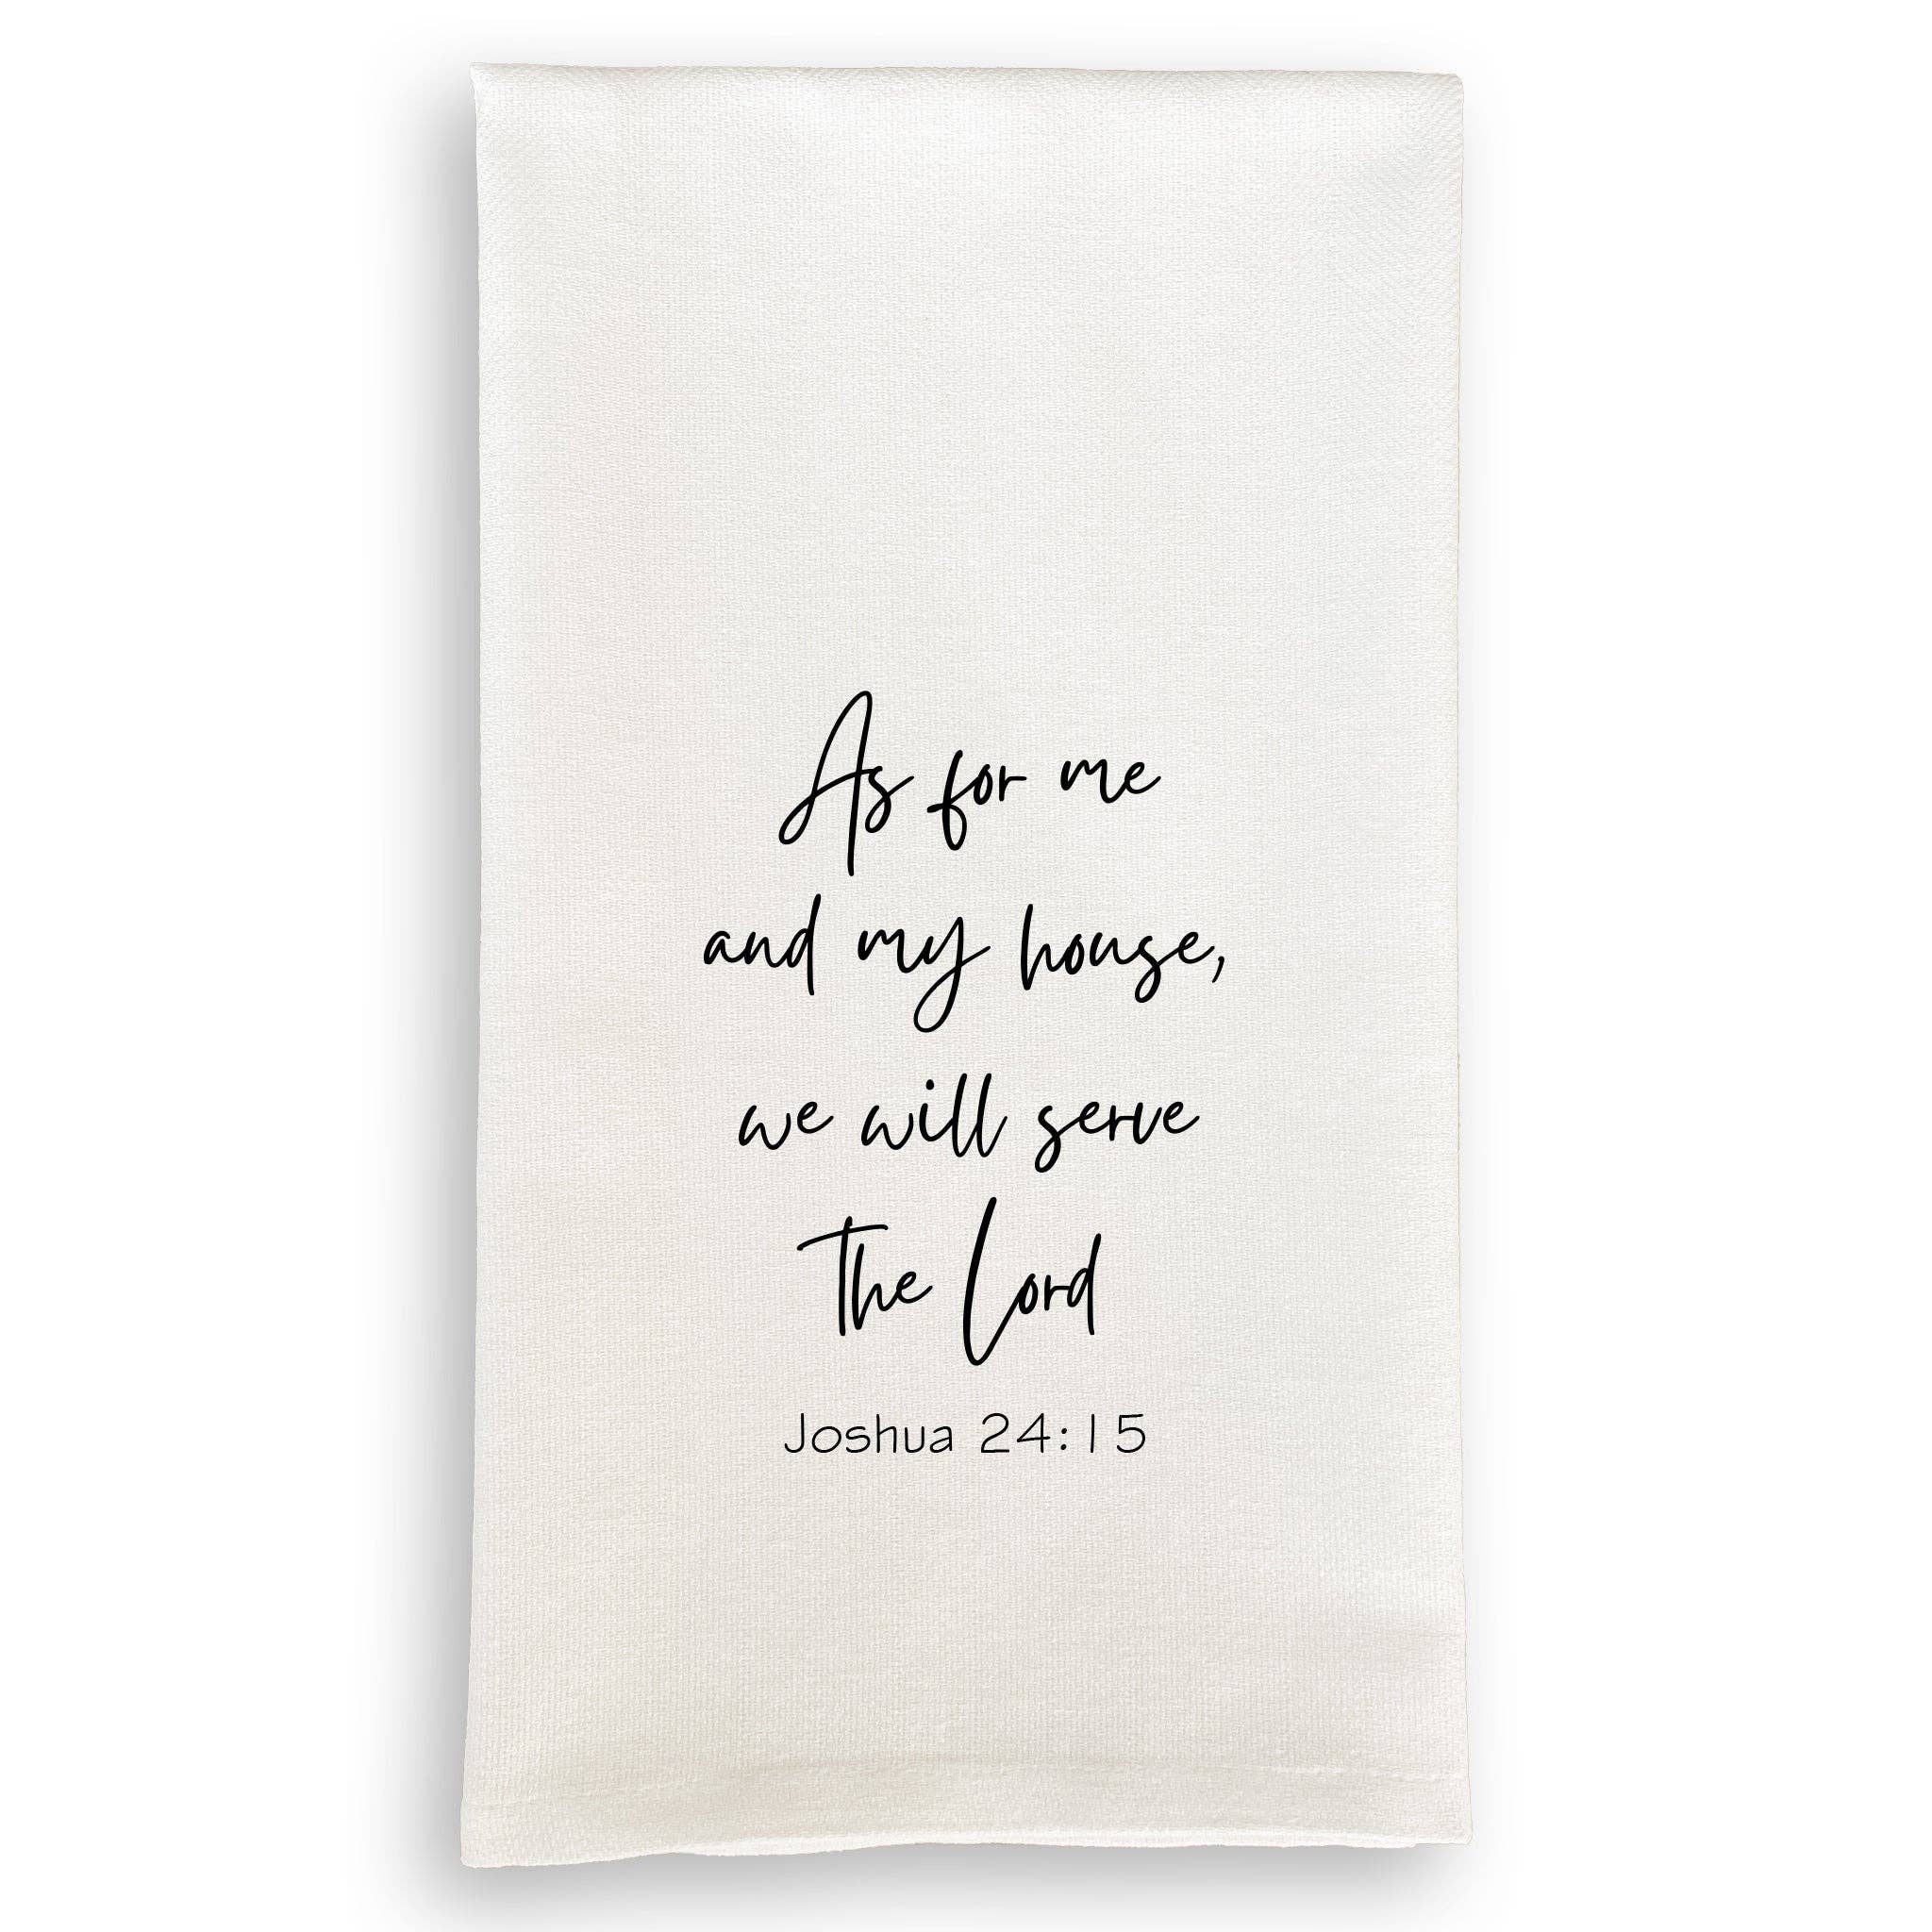 As for me
and my house,
we will serve
the Lord
Joshua 24:15